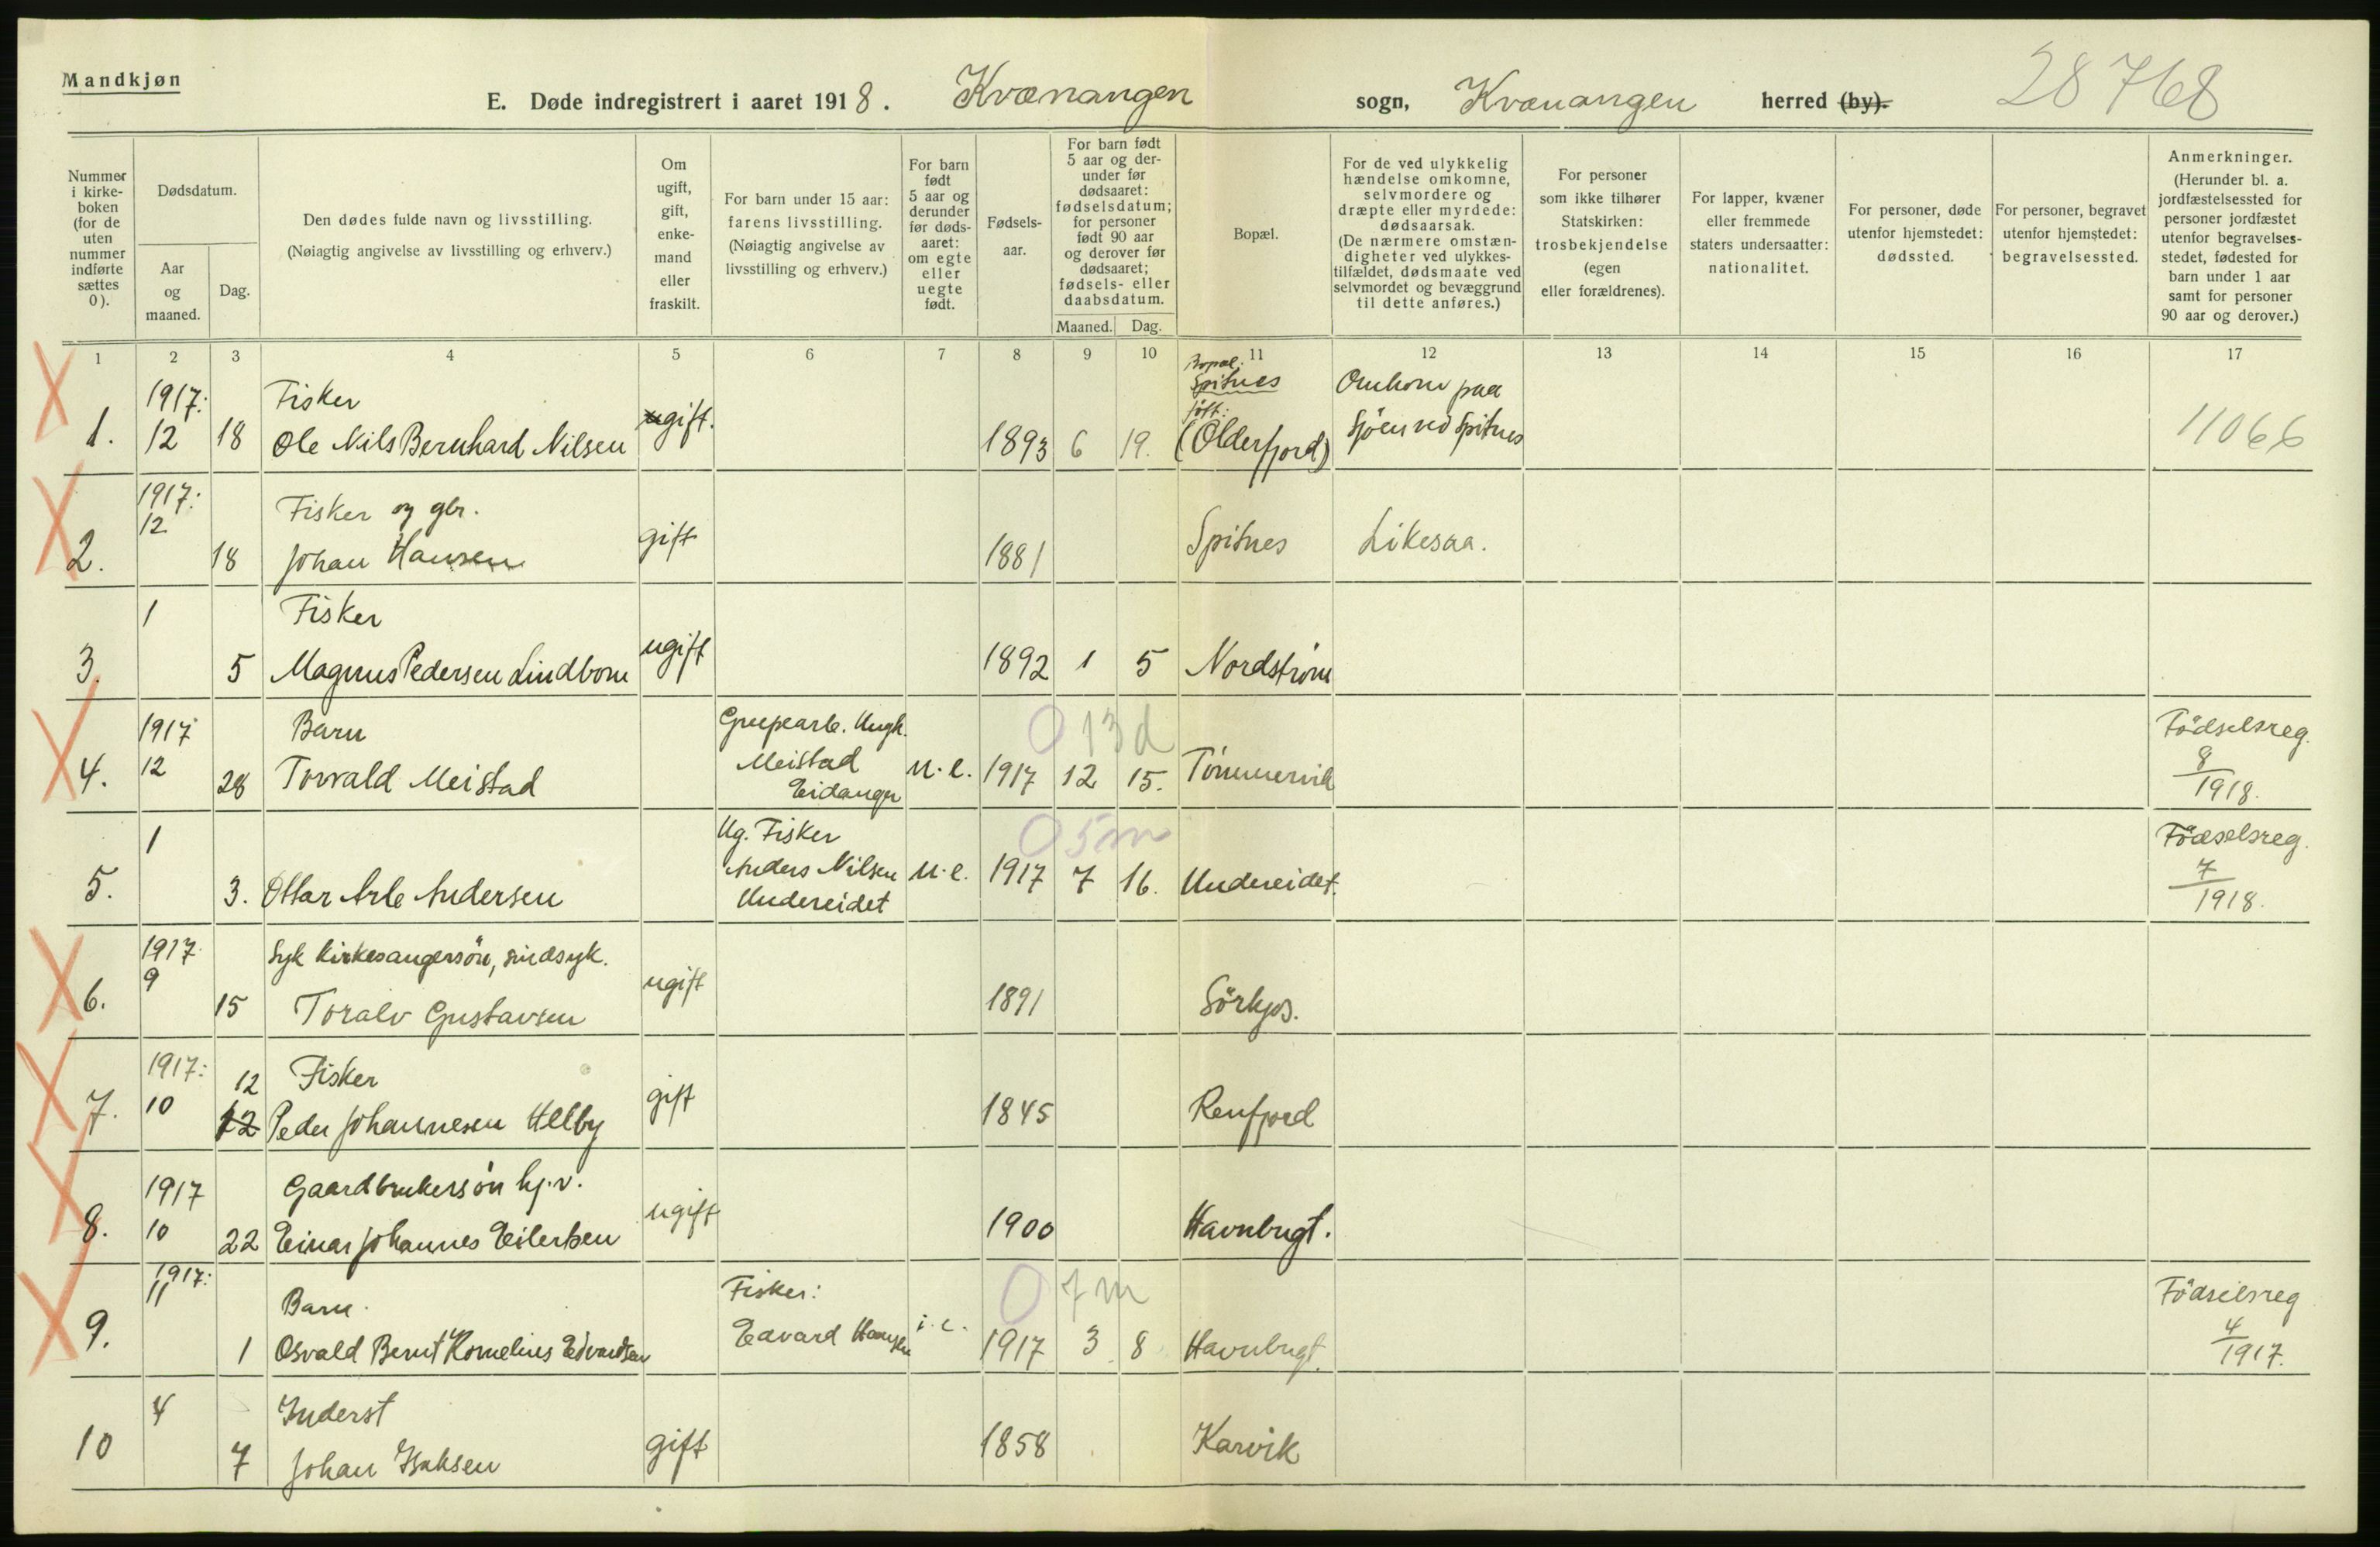 Mandkjøn
E. Døde indregistrert i aaret 1918. Kvænangen sogn, Kvænangen herred (by).
28768
Nummer i kirke- boken (for de uten nummer indførte sættes 0).
Dødsdatum.
Aar og maaned.
Dag.
Den dødes fulde navn og livsstilling.
(Nøiagtig angivelse av livsstilling og erhverv.)
Om ugift, gift, enke- mand eller fraskilt.
For barn under 15 aar: farens livsstilling.
(Nøiagtig angivelse av livsstilling og erhverv.)
For barn født 5 aar og derunder før døds- aaret: om egte eller uegte født.
Fødsels- aar.
For barn født 5 aar og der- under før dødsaaret: fødselsdatum; for personer født 90 aar og derover før dødsaaret; fødsels- eller daabsdatum.
Maaned. Dag.
Bopæl.
For de ved ulykkelig hændelse omkomne, selvmordere og dræpte eller myrdede: dødsaarsak.
(De nærmere omstæn- digheter ved ulykkes- tilfældet, dødsmaate ved selvmordet og bevæggrund til dette anføres.)
For personer som ikke tilhører Statskirken: trosbekjendelse (egen eller forældrenes).
For lapper, kvæner eller fremmede staters undersaatter: nationalitet.
For personer, døde utenfor hjemstedet: dødssted.
For personer, begravet utenfor hjemstedet: begravelsessted.
Anmerkninger.
(Herunder bl. a. jordfæstelsessted for personer jordfæstet utenfor begravelses- stedet, fødested for barn under 1 aar samt for personer 90 aar og derover.)
1 2 3 4 5 6 7 8 9 10 11 12 13 14 15 16 17
1917: Fisker Bopæl: Spitnes Omkom paa
1. 12 18 Ole Nils Bernhard Nilsen ugift. 1893 6 19. født: (Olderfjord) Sjöen ved Spitnes 11066
1917: 12 Fisker og gbr.
2. 18 Johan Hansen gift 1881 Spitnes Likesaa.
1 Fisker
3. 5 Magnus Pedersen Lindbom ugift 1892 1 5 Nordstrøm
1917 Barn Meistad 0 13 d Födselsreg.
4. 12 28 Torvald Meistad Eidanger u.e. 1917 12 15. Tömmervik 8/1918.
1 Ug. Fisker 0 5m Födselsreg.
5. 3. Ottar Arle Andersen Anders Nilsen Undereidet u.e. 1917 7 16. Undereidet. 7/1918.
1917 9 Syk kirkesangersön, sindsyk.
6. 15 Toralv Gustavsen ugift 1891 Sörkjos.
1917: 12 Fisker
7. 10 12 Peder Johannesen Helby gift 1845 Renfjord
1917 Gaardbrukersön hj.v.
8. 10 22 Einar Johannes Eilertsen ugift 1900 Havnbugt.
1917: 11 Barn. Fisker: 0 7m Födselsreg
9. 1 Osvald Bernt Kornelius Edvardsen Edvard i.e. 1917 3 8 Havnbugt. 4/1917.
4 Inderst
10 7 Johan Isaksen gift 1858 Karvik